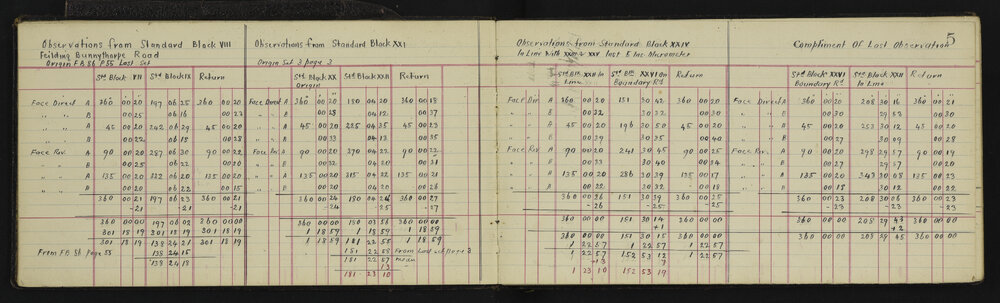 5
Observations from Standard Block VIII
Feilding Bunnythorpe Road
Origin F.B 56 P55 Last Set
Std Block VII Std Block IX Return
Face Direct A 360 00 20 197 06 25 360 00 20
" " B 00 25 06 16 00 23
" " A 45 00 20 242 06 29 45 00 20
" " B 00 22 06 15 00 28
Face Rev. A 90 00 20 287 06 30 90 00 22
" " B 00 25 06 22 00 20
" " A 135 00 20 322 06 20 135 00 20
" " B 00 20 06 22 00 15
360 00 21 197 06 23 360 00 21
-21 -21 -21
360 00 00 197 06 02 360 00 00
301 18 19 301 18 19 301 18 19
301 18 19 138 24 21 301 18 19
From F.B 56 Page 55 138 24 15
138 24 18
Observations from Standard Block XXI
Origin Set 3 page 3
Std Block XX Std Block XXII Return
Origin
Face Direct A 360 00 20 180 04 20 360 00 18
" " B 00 28 04 12 00 37
" " A 45 00 20 225 04 35 45 00 23
" " B 00 33 04 13 00 35
Face Rev. A 90 00 20 270 04 22 90 00 22
" " B 00 32 04 20 00 31
" " A 135 00 20 315 04 22 135 00 21
" " B 00 20 04 20 00 26
360 00 24 180 04 21 360 00 27
-24 -25 -27
360 00 00 180 03 56 360 00 00
1 18 59 1 18 59 1 18 59
1 18 59 181 22 55 1 18 59
181 22 58 From Last set page 3
181 22 57 mean
13
181 23 10
Observations from Standard Block XXIV
In Line with last 5 Inc Micrometer
Std Blk XXII In Line Std Blk XXVI On Boundary Rd Return
Face Dir. A 360 00 20 151 30 42 360 00 20
" " B 00 32 30 32 00 30
" " A 45 00 20 196 30 50 45 00 20
" " B 00 29 30 35 00 40
Face Rev. A 90 00 20 241 30 45 90 00 25
" " B 00 33 30 40 00 24
" " A 135 00 20 286 30 39 135 00 17
" " B 00 22 30 32 00 18
360 00 26 151 30 39 360 00 25
-26 -25 -25
360 00 00 151 30 14 360 00 00
+1
360 00 00 151 30 15 360 00 00
1 22 57 1 22 57 1 22 57
1 22 57 152 53 12 1 22 57
+13 7
1 23 10 152 53 19
Compliment Of Last Observation
Std Block XXVI Boundary Rd Std Block XXII In Line Return
Face Direct A 360 00 20 208 30 16 360 00 21
" " B 00 30 29 53 00 30
" " A 45 00 20 253 30 12 45 00 20
" " B 00 27 30 09 00 28
Face Rev. A 90 00 20 298 29 57 90 00 19
" " B 00 27 29 57 00 20
" " A 135 00 20 343 30 08 135 00 23
" " B 00 18 30 12 00 22
360 00 23 208 30 06 360 00 23
-23 -23 -23
360 00 00 208 29 43 360 00 00
+2
360 00 00 208 29 45 360 00 00